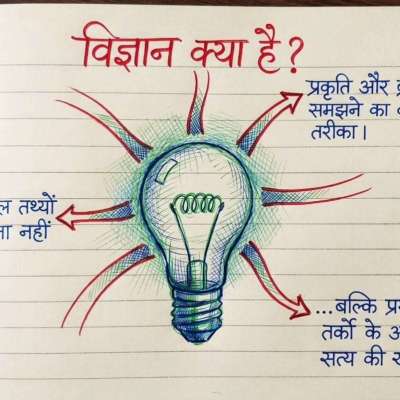 विज्ञान क्या है?
प्रकृति और
समझने का
तरीका।
तथ्यों
नहीं
...बल्कि
तर्कों के
सत्य की